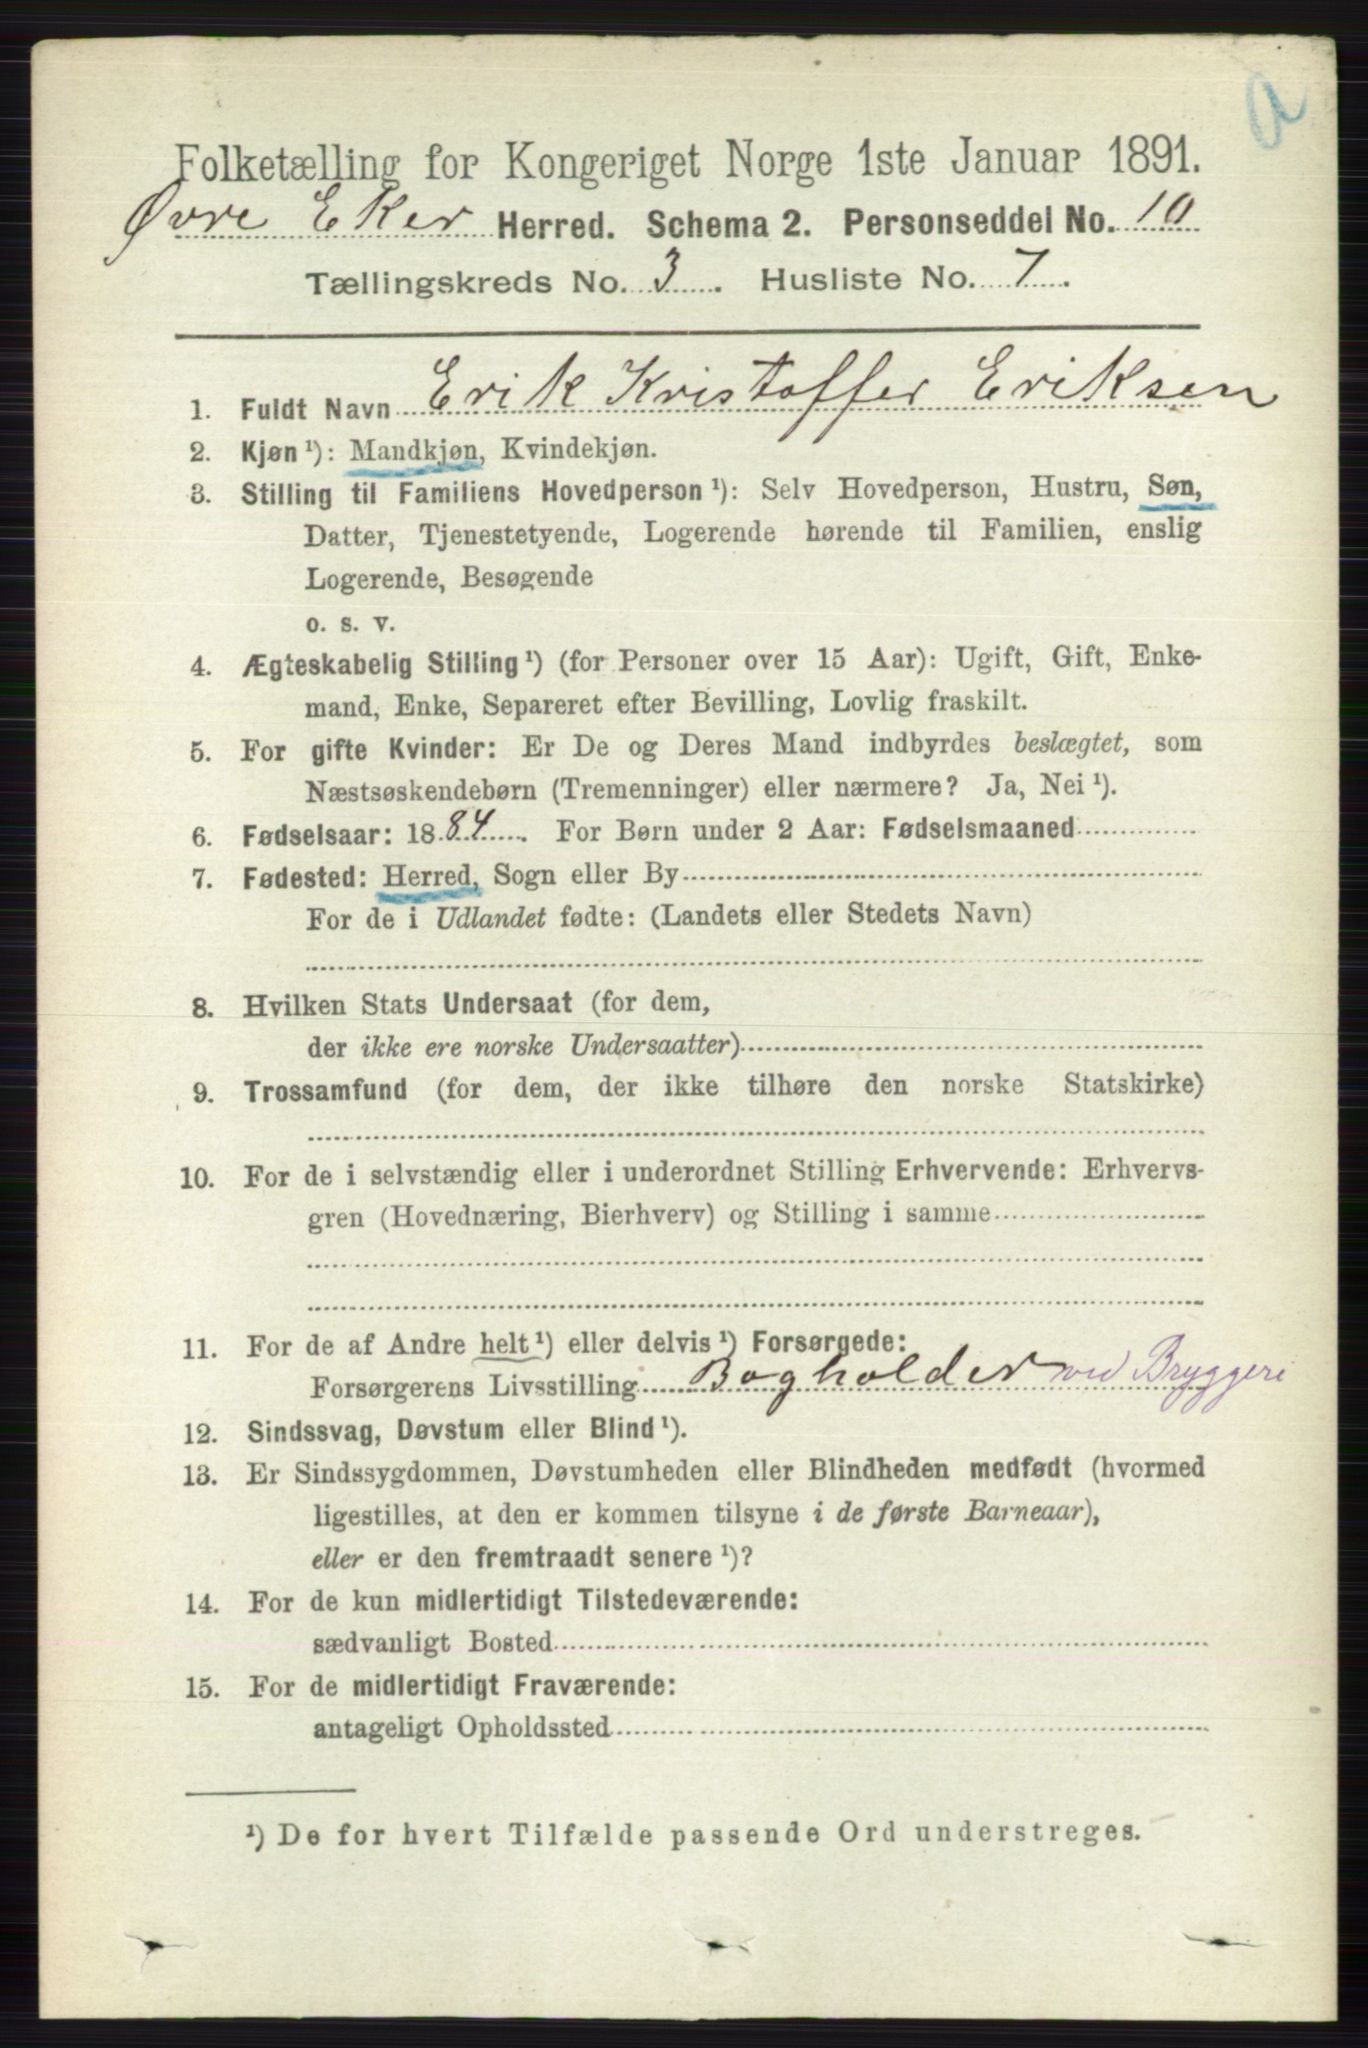 a
Folketælling for Kongeriget Norge 1ste Januar 1891.
Øvre Eker Herred. Schema 2. Personseddel No. 10
Tællingskreds No. 3. Husliste No. 7.
1. Fuldt Navn Erik Kristoffer Eriksen
2. Kjøn ¹): Mandkjøn, Kvindekjøn.
3. Stilling til Familiens Hovedperson ¹): Selv Hovedperson, Hustru, Søn,
Datter, Tjenestetyende, Logerende hørende til Familien, enslig
Logerende, Besøgende
o. s. v.
4. Ægteskabelig Stilling ¹) (for Personer over 15 Aar): Ugift, Gift, Enke-
mand, Enke, Separeret efter Bevilling, Lovlig fraskilt.
5. For gifte Kvinder: Er De og Deres Mand indbyrdes beslægtet, som
Næstsøskendebørn (Tremenninger) eller nærmere? Ja, Nei ¹).
6. Fødselsaar: 1884. For Børn under 2 Aar: Fødselsmaaned
7. Fødested: Herred, Sogn eller By
For de i Udlandet fødte: (Landets eller Stedets Navn)
8. Hvilken Stats Undersaat (for dem,
der ikke ere norske Undersaatter)
9. Trossamfund (for dem, der ikke tilhøre den norske Statskirke)
10. For de i selvstændig eller i underordnet Stilling Erhvervende: Erhvervs-
gren (Hovednæring, Bierhverv) og Stilling i samme
11. For de af Andre helt ¹) eller delvis ¹) Forsørgede:
Forsørgerens Livsstilling Bogholder ved Bryggeri
12. Sindssvag, Døvstum eller Blind ¹).
13. Er Sindssygdommen, Døvstumheden eller Blindheden medfødt (hvormed
ligestilles, at den er kommen tilsyne i de første Barneaar),
eller er den fremtraadt senere ¹)?
14. For de kun midlertidigt Tilstedeværende:
sædvanligt Bosted
15. For de midlertidigt Fraværende:
antageligt Opholdssted
¹) De for hvert Tilfælde passende Ord understreges.